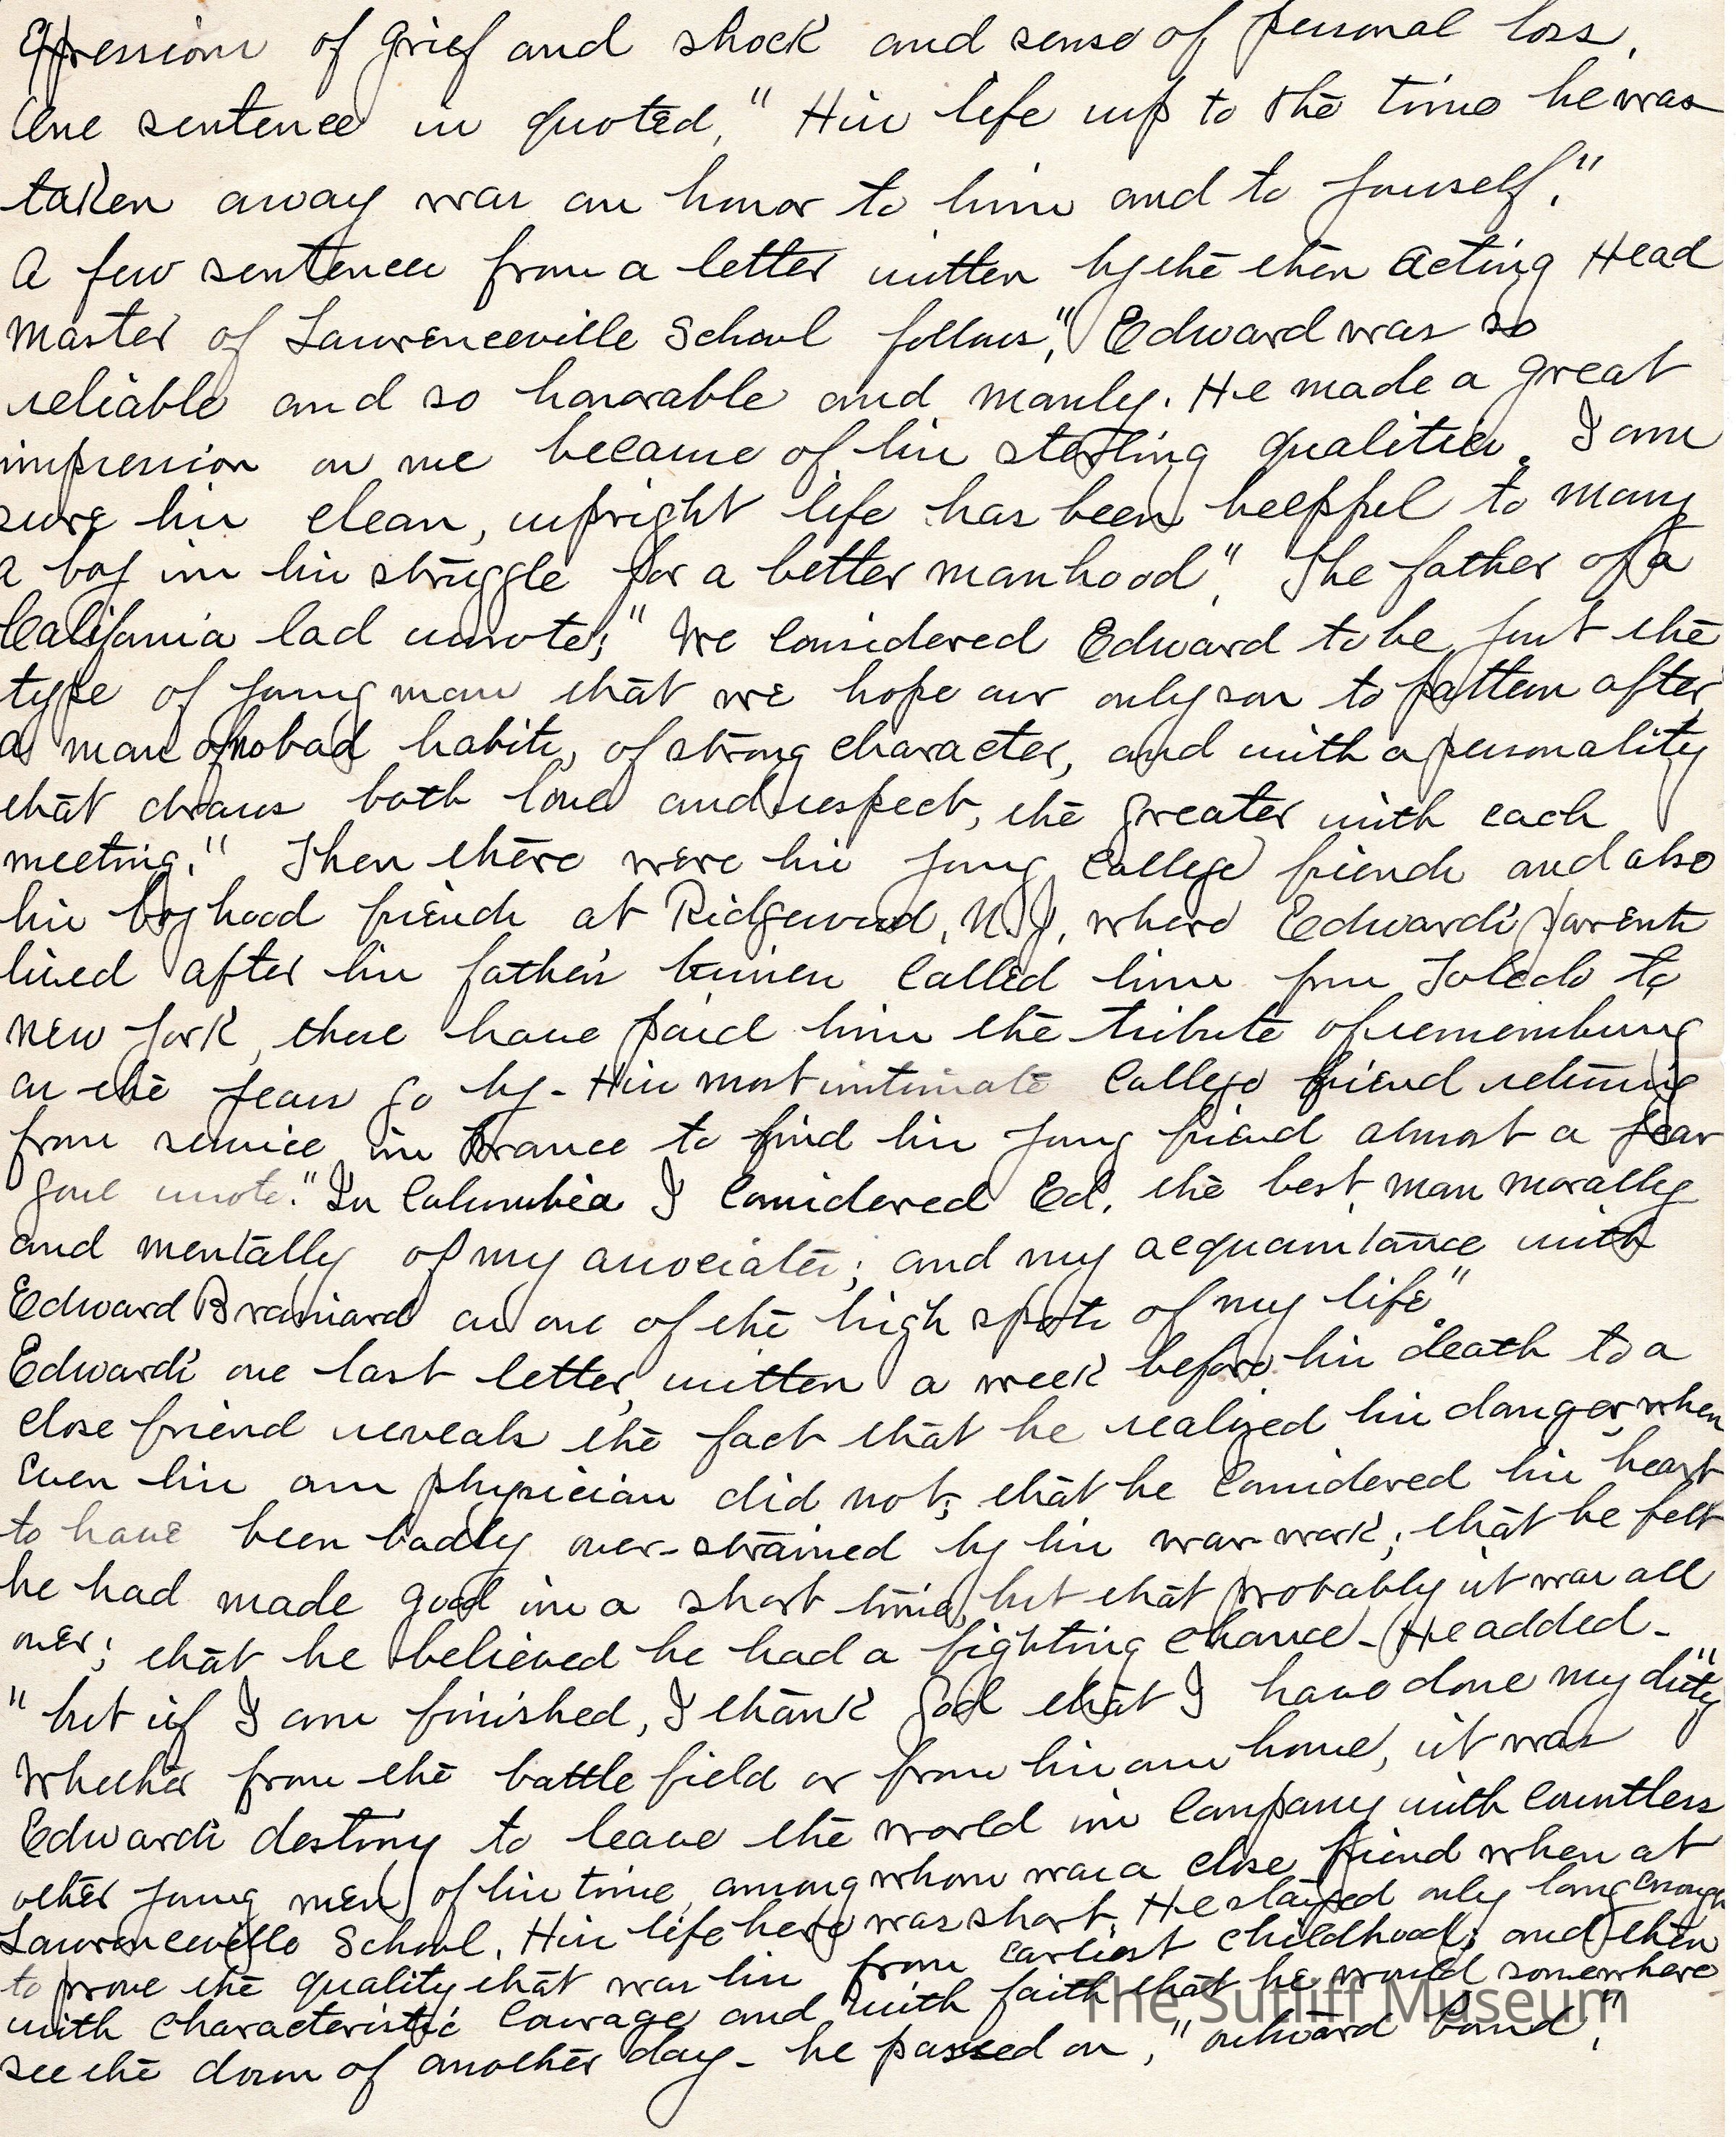 Expressions of grief and shock and sense of personal loss.
One sentence is quoted, "His life up to the time he was
taken away was an honor to him and to yourself."
A few sentences from a letter written by the then Acting Head
master of Lawrenceville School follows, "Edward was so
reliable and so honorable and manly. He made a great
impression on me because of his sterling qualities. I am
sure his clean, upright life has been helpful to many
a boy in his struggle for a better manhood." The father of a
California lad wrote; "We considered Edward to be just the
type of young man that we hope our only son to pattern after
a man of no bad habits, of strong character, and with a personality
that draws both love and respect, the greater with each
meeting." Then there were his young college friends and also
his boyhood friends at Ridgewood, N.J., where Edward's parents
lived after his father's business called him from Toledo to
New York, these have paid him the tribute of remembering
as the years go by - His most intimate College friend returning
from service in France to find his young friend almost a year
gone wrote: "In Columbia I considered Ed. the best man morally
and mentally of my associates; and my acquaintance with
Edward Brainard as one of the high spots of my life"
Edward's one last letter, written a week before his death to a
close friend reveals the fact that he realized his danger, when
even his own physician did not; that he considered his heart
to have been badly over-strained by his war-work; that he felt
he had made good in a short time, but that probably it was all
over; that he believed he had a fighting chance - He added -
"but if I am finished, I thank God that I have done my duty"
Whether from the battle field or from his own home, it was
Edward's destiny to leave the world in company with countless
other young men of his time, among whom was a close friend when at
Lawrenceville School. His life here was short. He stayed only long enough
to prove the quality that was his from earliest childhood; and then
with characteristic courage and with faith that he would somewhere
see the dawn of another day - he passed on, "outward bound."
The Sutliff Museum